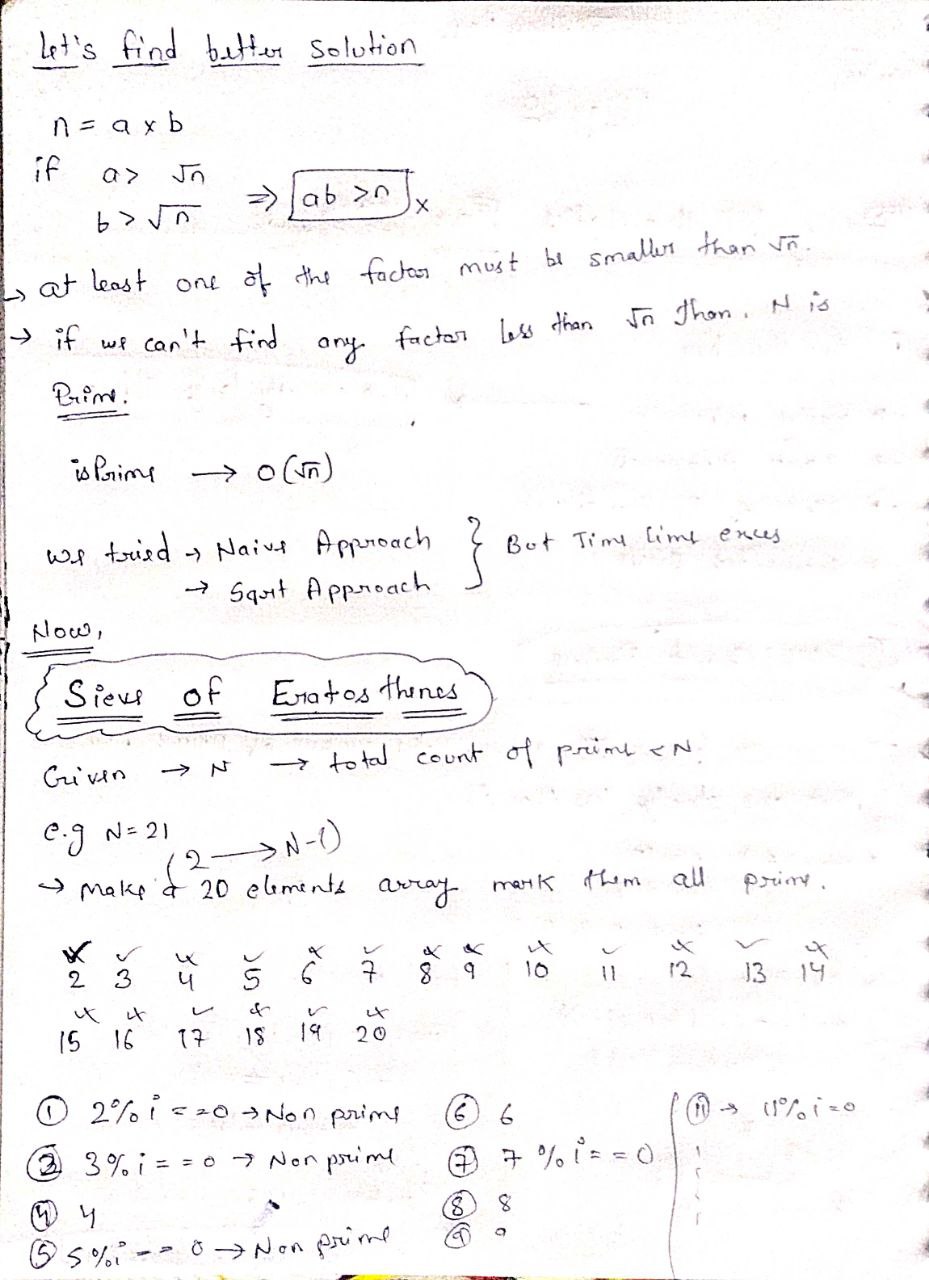 Let's find better solution
n = a x b
if a > √n
b > √n ⇒ ab > n x
↳ at least one of the factor must be smaller than √n.
→ if we can't find any factor less than √n then. N is
Prime.
isPrime → O(√n)
we tried → Naive Approach } But Time lime exces
→ Sqrt Approach
Now,
Sieve of Eratosthenes
Given → N → total count of prime < N.
e.g N = 21
(2 → N-1)
→ make 20 elements array mark them all prime.
2 3 4 5 6 7 8 9 10 11 12 13 14
15 16 17 18 19 20
① 2 % i == 0 → Non prime ⑥ 6 ⑪ → 11 % i = 0
③ 3 % i == 0 → Non prime ⑦ 7 % i == 0
④ 4 ⑧ 8
⑤ 5 % i == 0 → Non prime ⑨ 9